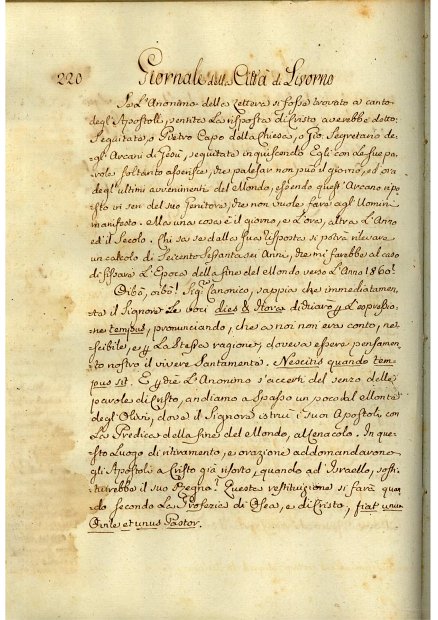 220 Giornale della Città di Livorno
Se L'Anonimo della Lettera si fosse trovato a canto
degl'Apostoli, sentita La risposta di Cristo, averebbe detto:
Seguitate, o Pietro Capo della Chiesa, o Gio: Segretario de-
gl'Arcani di Gesù, seguitate inquisicendo Egli con Le sue pa-
role soltanto asserisce, che palesar non può il giorno, ed ora
degl'ultimi avvenimenti del Mondo, essendo quest'Arcano ripo-
sto in sen del suo Genitore, che non vuole farne agl'Uomini
manifesto. Ma una cosa è il giorno, e L'ora, altra L'Anno
ed il Secolo. Chi sa se dalla sua risposta si potrà rilevare
un calcolo di Seicento Sessanta sei Anni, che mi farebbe al caso
di fissare L'Epoca della fine del Mondo verso L'Anno 1860?
Oibò, oibò! Sigr. Canonico, sappia che immediatamen-
te il Signore Le voci dies & Hora dichiarò p L'espressio-
ne tempus, pronunciando, che a noi non era conto, ne
scibile, e p La stessa ragione, doveva essere pensamen-
to nostro il vivere Santamente. Nescitis quando tem-
pus sit. E p che L'Anonimo s'accerti del senso delle
parole di Cristo, andiamo a spasso un poco dal Monte
degl'Olivi, dove il Signore istruì i suoi Apostoli, con
La Predica della fine del Mondo, al Cenacolo. In que-
sto Luogo di ritiramento, e orazione addomandavono
gli Apostoli a Cristo già risorto, quando ad Israello, resti-
tuirebbe il suo Regno? Questa restituzione si farà quan-
do secondo La Profezia di Osea, e di Cristo, fiat unum
Ovile et unus Pastor.